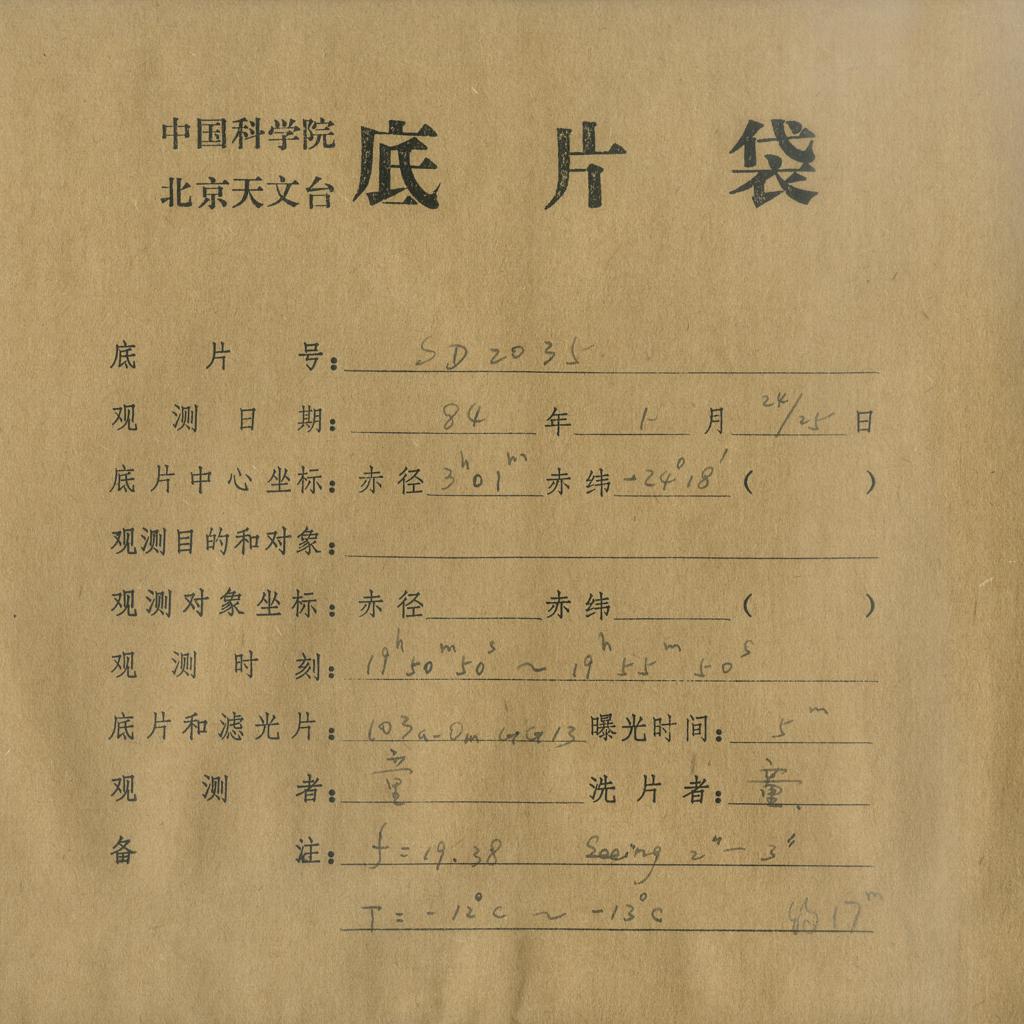 中国科学院
北京天文台
底片袋
底片号：SD2035
观测日期：84年1月24/25日
底片中心坐标：赤径3ʰ01ᵐ赤纬-24°18′（ ）
观测目的和对象：
观测对象坐标：赤径 赤纬 （ ）
观测时刻：19ʰ50ᵐ50ˢ～19ʰ55ᵐ50ˢ
底片和滤光片：103a-Om GG13 曝光时间：5ᵐ
观测者：童 洗片者：童.
备注：f=19.38 Seeing 2″-3″
T=-12°C～-13°C 约17ᵐ